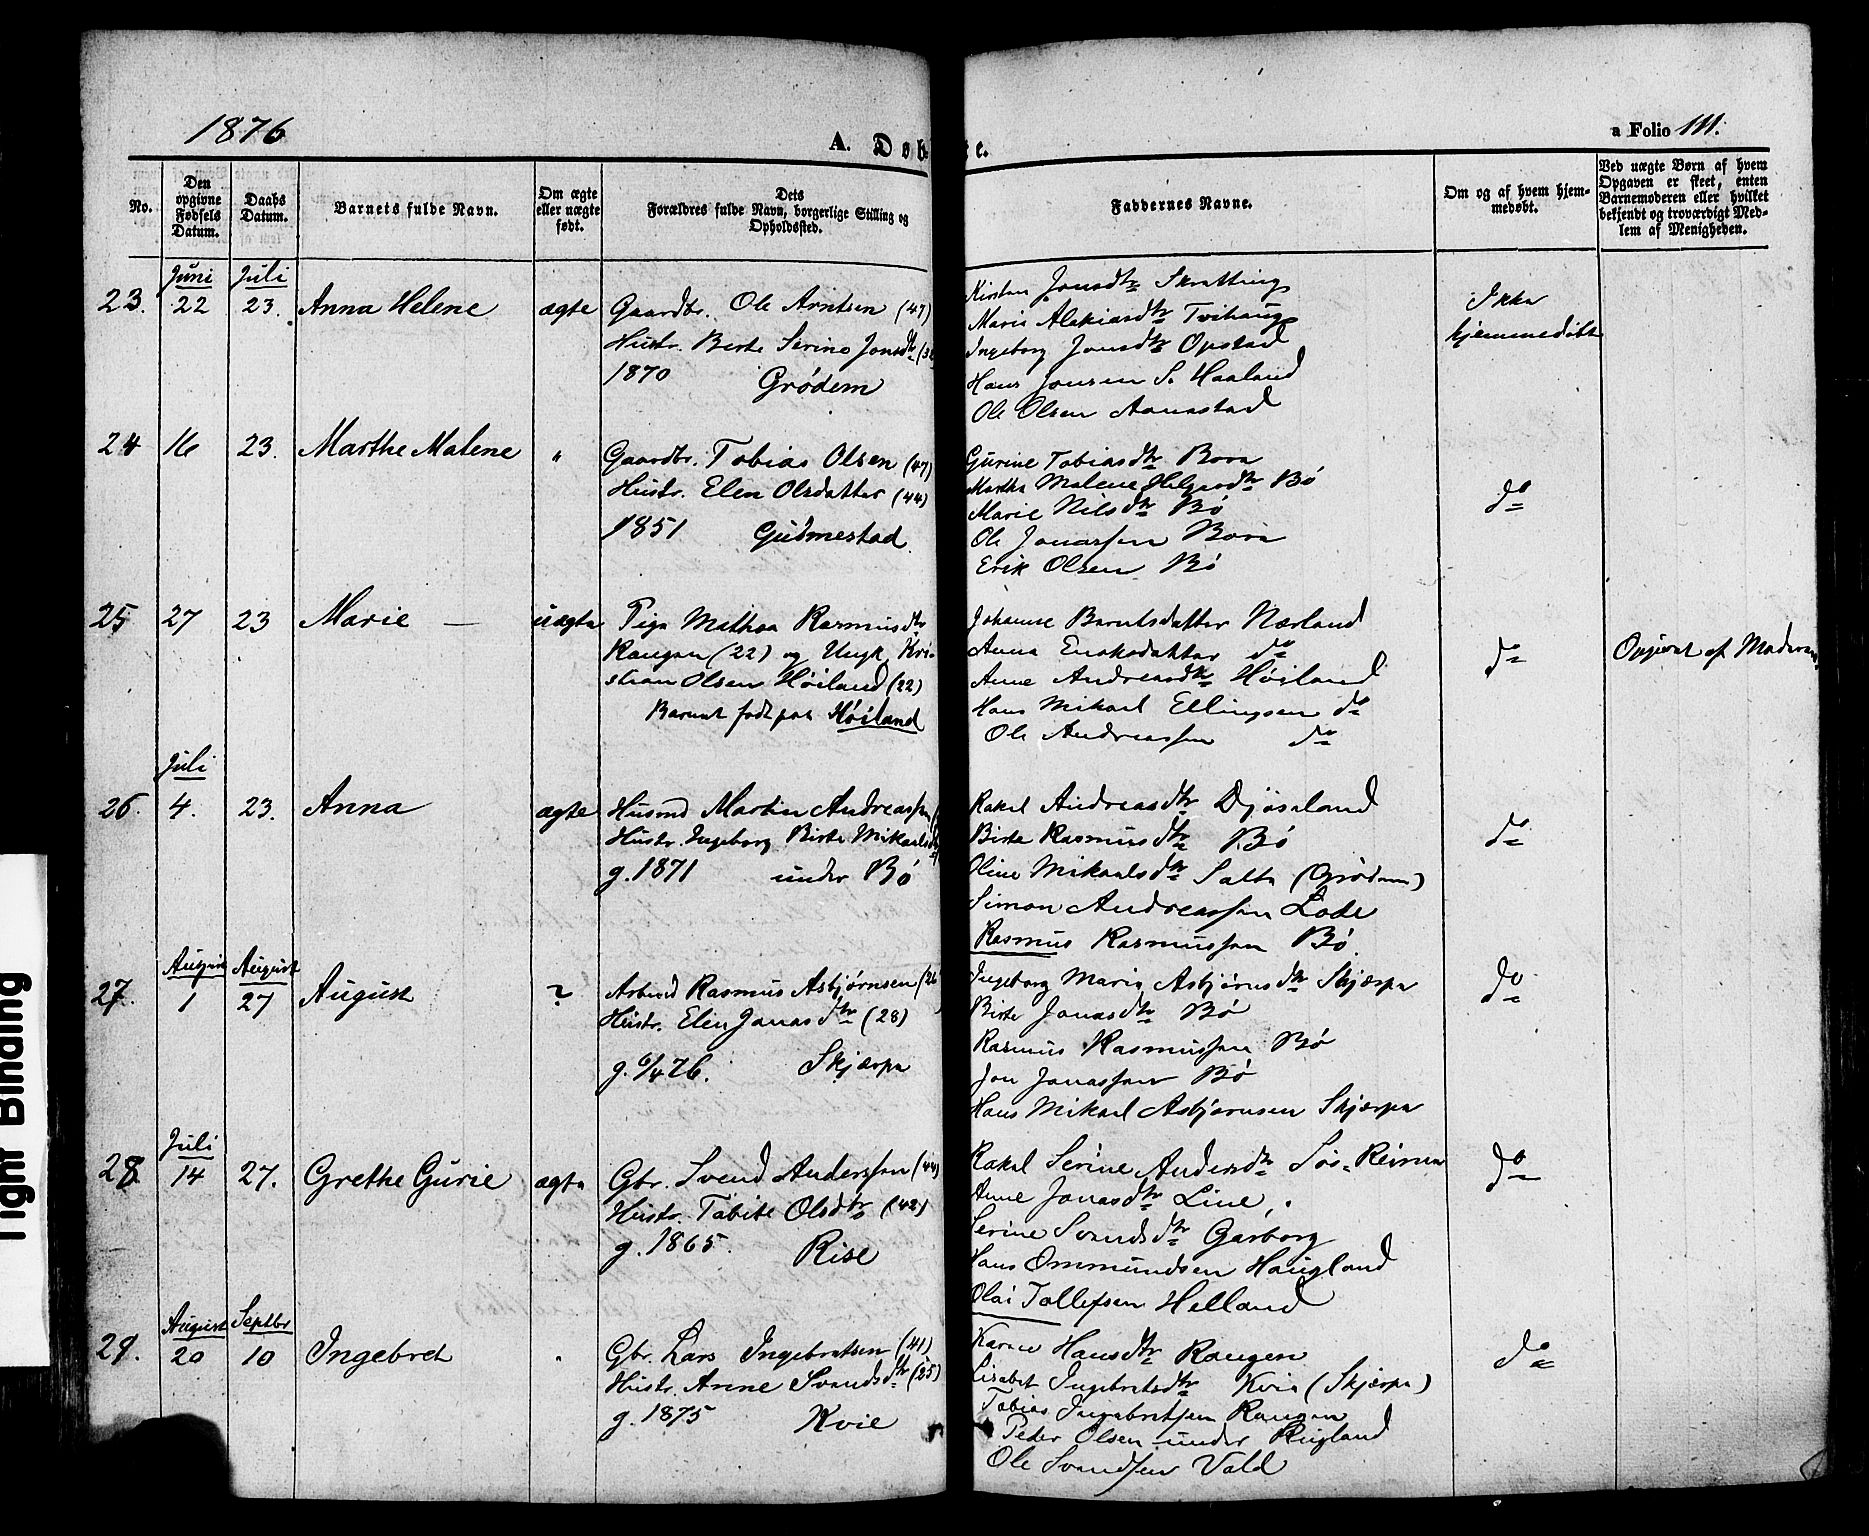 1876
A. Døbte.
a Folio 111.
No.
Den opgivne Fødsels Datum.
Daabs Datum.
Barnets fulde Navn.
Om ægte eller uægte født.
Dets Forældres fulde Navn, borgerlige Stilling og Opholdssted.
Faddernes Navne.
Om og af hvem hjemmedøbt.
Ved uægte Børn af hvem Opgaven er skeet, enten Barnemoderen eller hvilket bekjendt og troværdigt Medlem af Menigheden.
Juni Juli
23. 22 23. Anna Helene ægte
Gaardbr. Ole Arntsen (47)
Hustr. Berte Serine Jonsdtr
1870 Grødem
Kirsten Jonsdtr Skretting
Marie Tvihaug
Ingeborg Jonsdtr Opstad
Hans Jonsen S. Haaland
Ole Olsen Aanestad
Ikke
hjemmedøbt
24 16 23. Marthe Malene "
Gaardbr. Tobias Olsen (47)
Hustr. Elen Olsdatter (44)
1851 Gudmestad
Gurine Tobiasdtr Bore
Marthe Malene Helgesdtr Bø
Marie Nilsdtr Bø
Ole Jonassen Bore
Erik Olsen Bø
do
25 27 23 Marie — uægte
Pige Mathea Rasmusdtr
Raugen (22) og Ungk. Kri-
stian Olsen Høiland (22)
Barnet født paa Høiland
Johanne Berntsdatter Nærland
Anna Enoksdatter do
Anne Andreasdtr Høiland
Hans Mikael Ellingsen do
Ole Andreassen do
do
Opgivet af Moderen
Juli
26. 4. 23. Anna ægte
Husmd Martin Andreassen
Hustr. Ingeborg Birte Mikaelsdtr
g. 1871 under Bø
Rakel Andreasdtr Djøsland
Birte Rasmusdtr Bø
Oline Mikaelsdtr Salte (Grødem)
Simon Andreassen Lode
Rasmus Rasmussen Bø
do
August August
27. 1 27 August ?
Arbmd Rasmus Asbjørnsen (26
Hustr. Elen Jonasdtr (28)
g. 6/4 76. Skjærpe
Ingeborg Marie Asbjørnsdtr Skjærpe
Birte Jonasdtr Bø
Rasmus Rasmussen Bø
Jon Jonassen Bø
Hans Mikael Asbjørnsen Skjærpe
do
Juli
28. 14 27. Grethe Gurie ægte
Gbr. Svend Anderssen (44)
Hustr. Tabite Olsdtr (42)
g. 1865. Rise
Rakel Serine Andersdtr Sør-Reime
Anne Jonasdtr Line
Serine Svendsdtr Garborg
Hans Ommundsen Haugland
Olai Tollefsen Helland
do
August Septbr
29. 20 10 Ingebret "
Gbr. Lars Ingebretsen (41)
Hustr. Anne Svendsdtr (25)
g. 1875 Kvie
Karen Hansdtr Raugen
Lisabet Ingebretsdtr Kvie (Skjærpe)
Tobias Ingebretsen Raugen
Peder Olsen under Rugland
Ole Svendsen Vold
do
Tight Binding